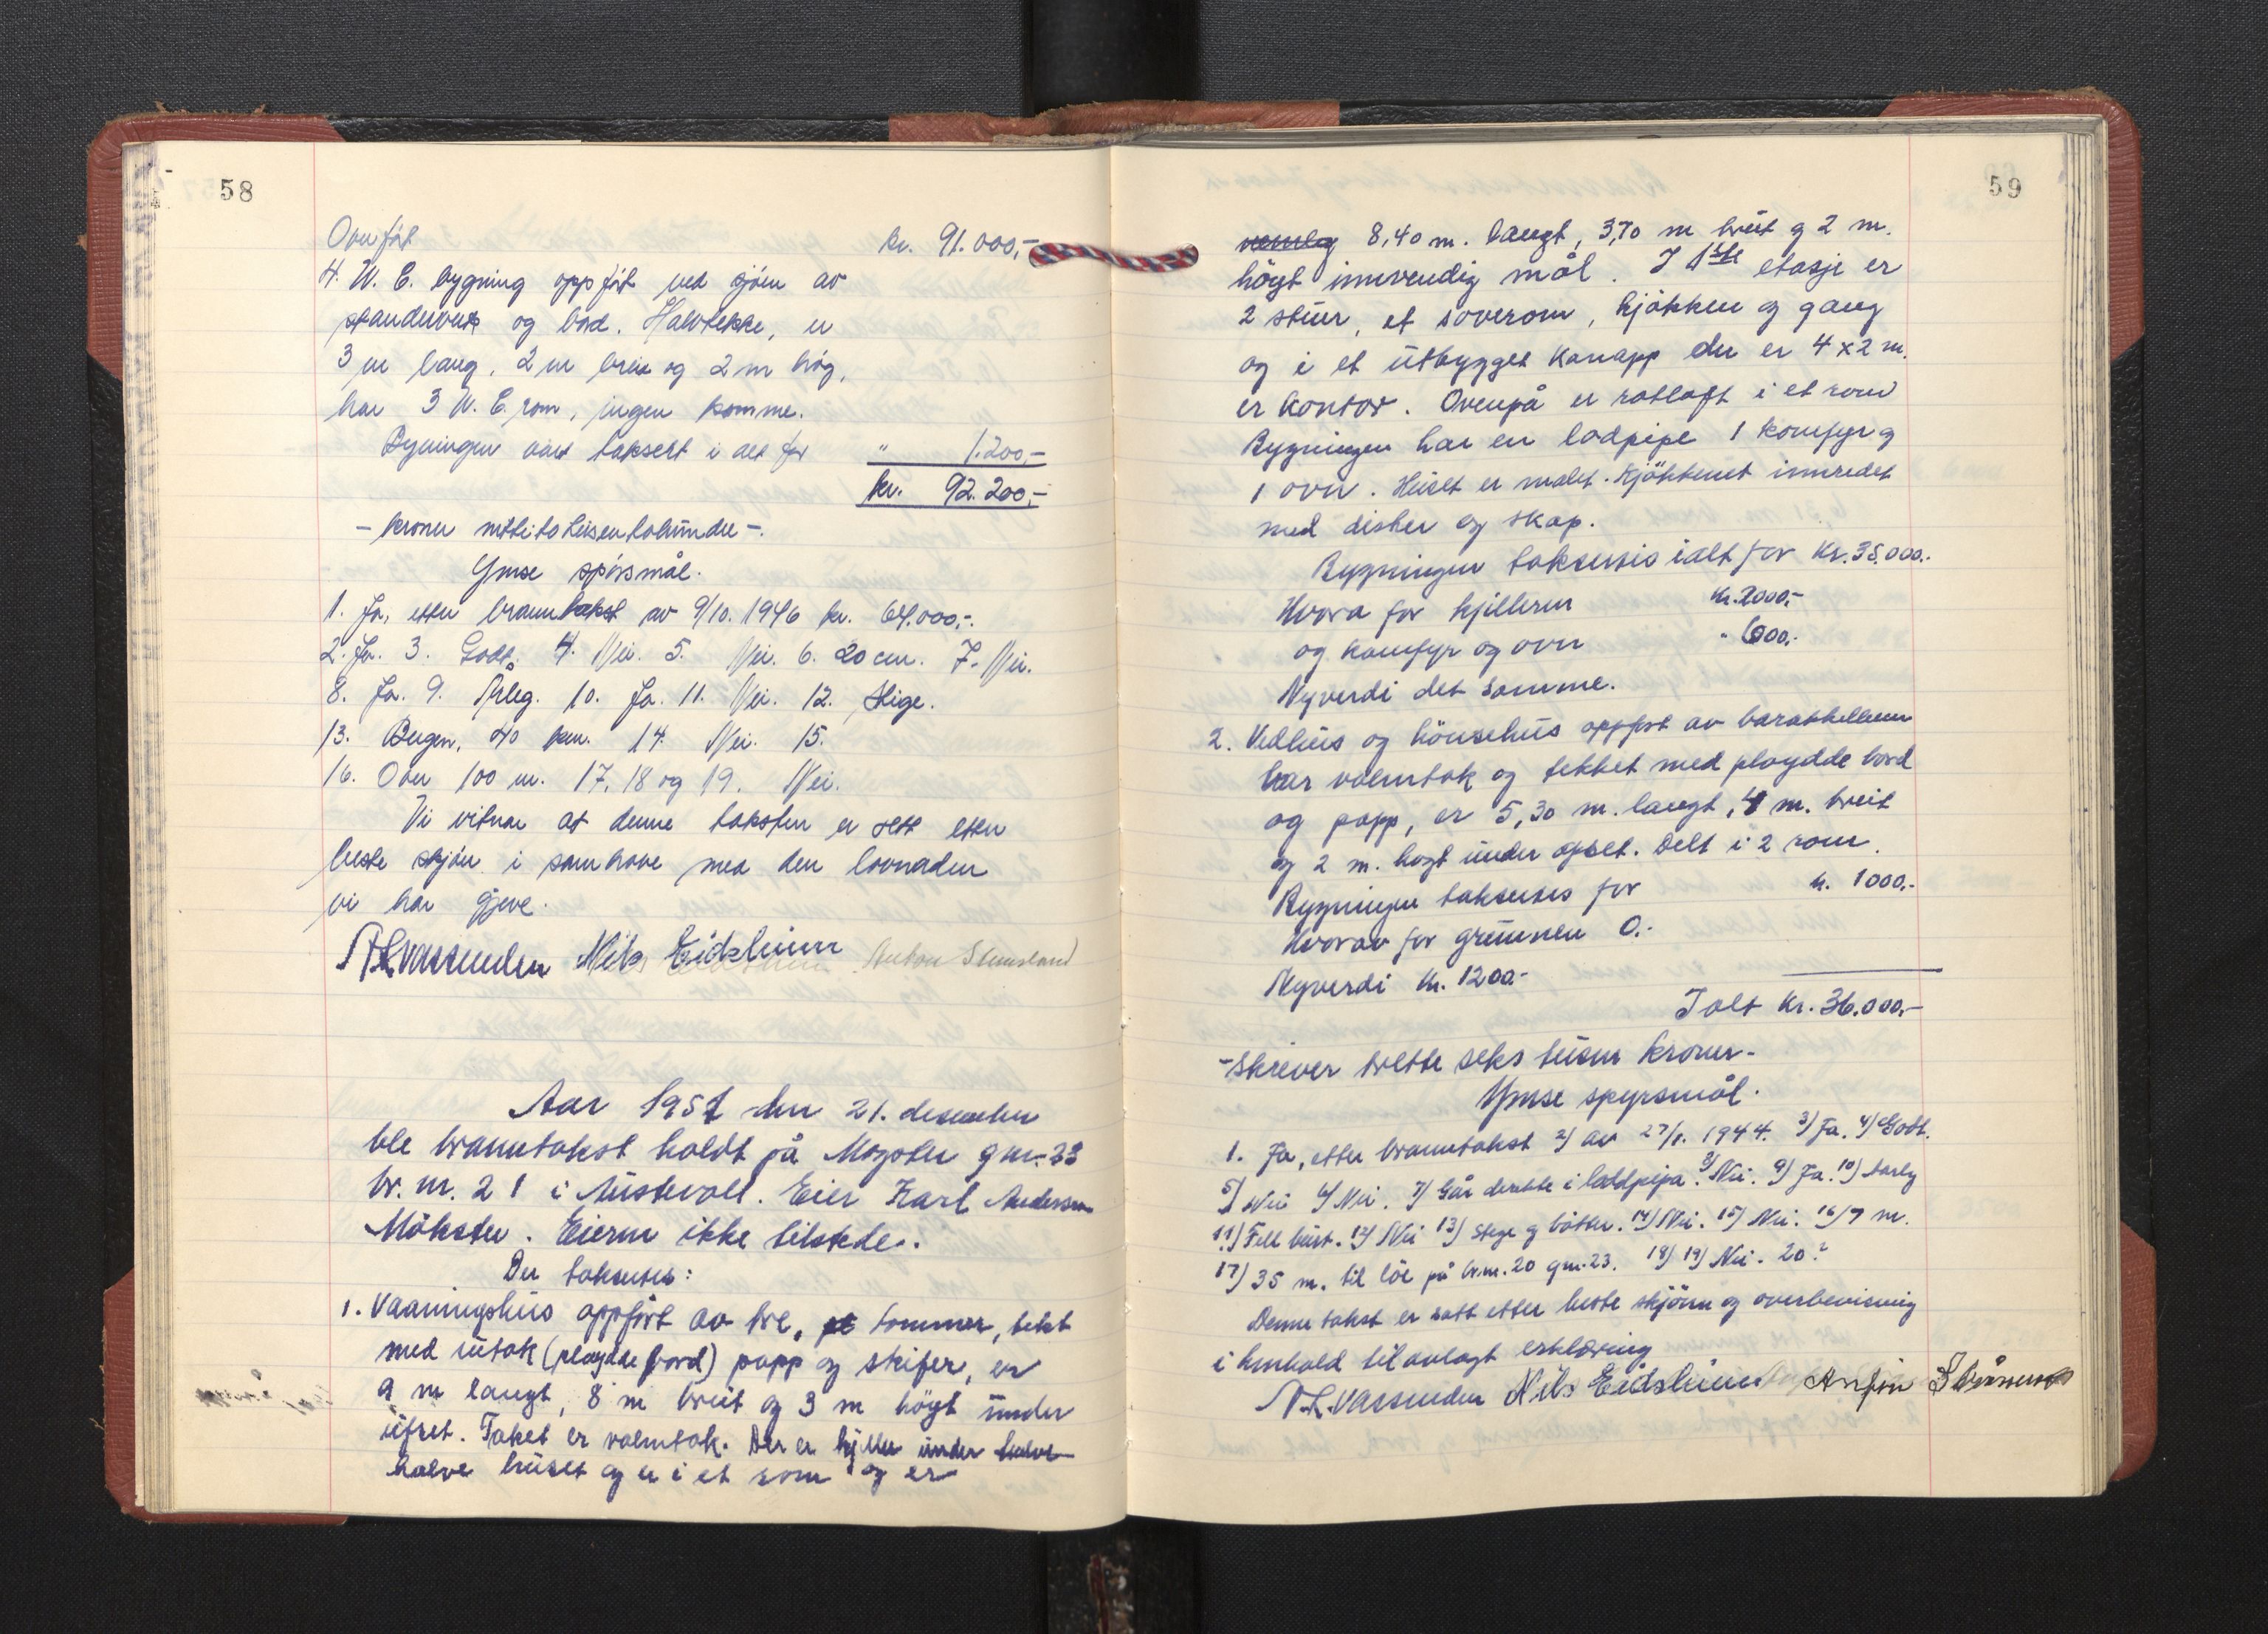 58
Overført kr. 91.000,-
4. W. C. bygning oppført ved sjøen av
standerverk og bord. Halvtekke, er
3 m lang, 2 m brei og 2 m høg,
har 3 W. C. rom, ingen komme.
Bygningen vart taksert i alt for " 1.200,-
kr. 92.200,-
- kroner nittitotusentohundre -.
Ymse spørsmål.
1. Ja, etter branntakst av 9/10. 1946 kr. 64.000,-.
2. Ja. 3. Godt. 4. Nei. 5. Nei. 6. 20 cm. 7. Nei.
8. Ja. 9. Årleg. 10. Ja. 11. Nei. 12. Stige.
13. Bergen, 40 km. 14. Nei. 15.
16. Over 100 m. 17, 18 og 19. Nei.
Vi vitnar at denne taksten er sett etter
beste skjøn i samhøve med den lovnaden
vi har gjeve.
N. L. Vassenden Nils Eidsheim Anton Stensland
Aar 1951 den 21. desember
ble branntakst holdt på Møgster gnr. 33
br. nr. 21 i Austevoll. Eier Karl Anderssen
Møkster. Eieren ikke tilstede.
Der takseres:
1. Vaaningshus oppført av tre, tømmer, tekt
med sutak (pløydde bord) papp og skifer, er
9 m langt, 8 m breit og 3 m høgt under
ufset. Taket er valmtak. Der er kjeller under halve
halve huset og er i et rom og er
59
nemleg 8,40 m. langt, 3,70 m breit og 2 m.
högt innvendig mål. I 1ste etasje er
2 stuer, et soverom, kjökken og gang
og i et utbygget kanapp der er 4 x 2 m.
er kontor. Ovenpå er rotloft i et rom
Bygningen har en lodpipe 1 komfyr og
1 ovn. Huset er malet. Kjökkenet innredet
med disker og skap.
Bygningen takseres ialt for kr. 35.000.-
Hvorav for kjelleren kr. 2000.-
og komfyr og ovn " 600.-
Nyverdi det samme.
2. Vedhus og hönsehus oppfört av barakkellem
har valmtak og tekket med pløydde bord
og papp, er 5,30 m. langt, 4 m. breit
og 2 m. högt under ufset. Delt i 2 rom.
Bygningen takseres for kr. 1000.-
Hvorav for grunnen 0.-
Nyverdi kr. 1200.-
Ialt kr. 36.000.-
- skriver trette seks tusen kroner -
Ymse spyrsmål.
1. Ja, etter branntakst 2) av 27/8. 1944. 3) Ja. 4) Godt.
5) Nei 6) Nei. 7) Går direkte i loddpipa. 8) Nei. 9) Ja. 10) Aarleg
11) Fell best. 12) Nei 13) Stege og bötter. 14) Nei. 15) Nei. 16) 7 m.
17) 35 m. til löe på br.nr. 20 gnr. 23. 18) 19) Nei. 20?
Denne takst er satt etter beste skjönn og overbevisning
i henhold til avlagt erklæring
N. L. Vassenden Nils Eidsheim Anfin